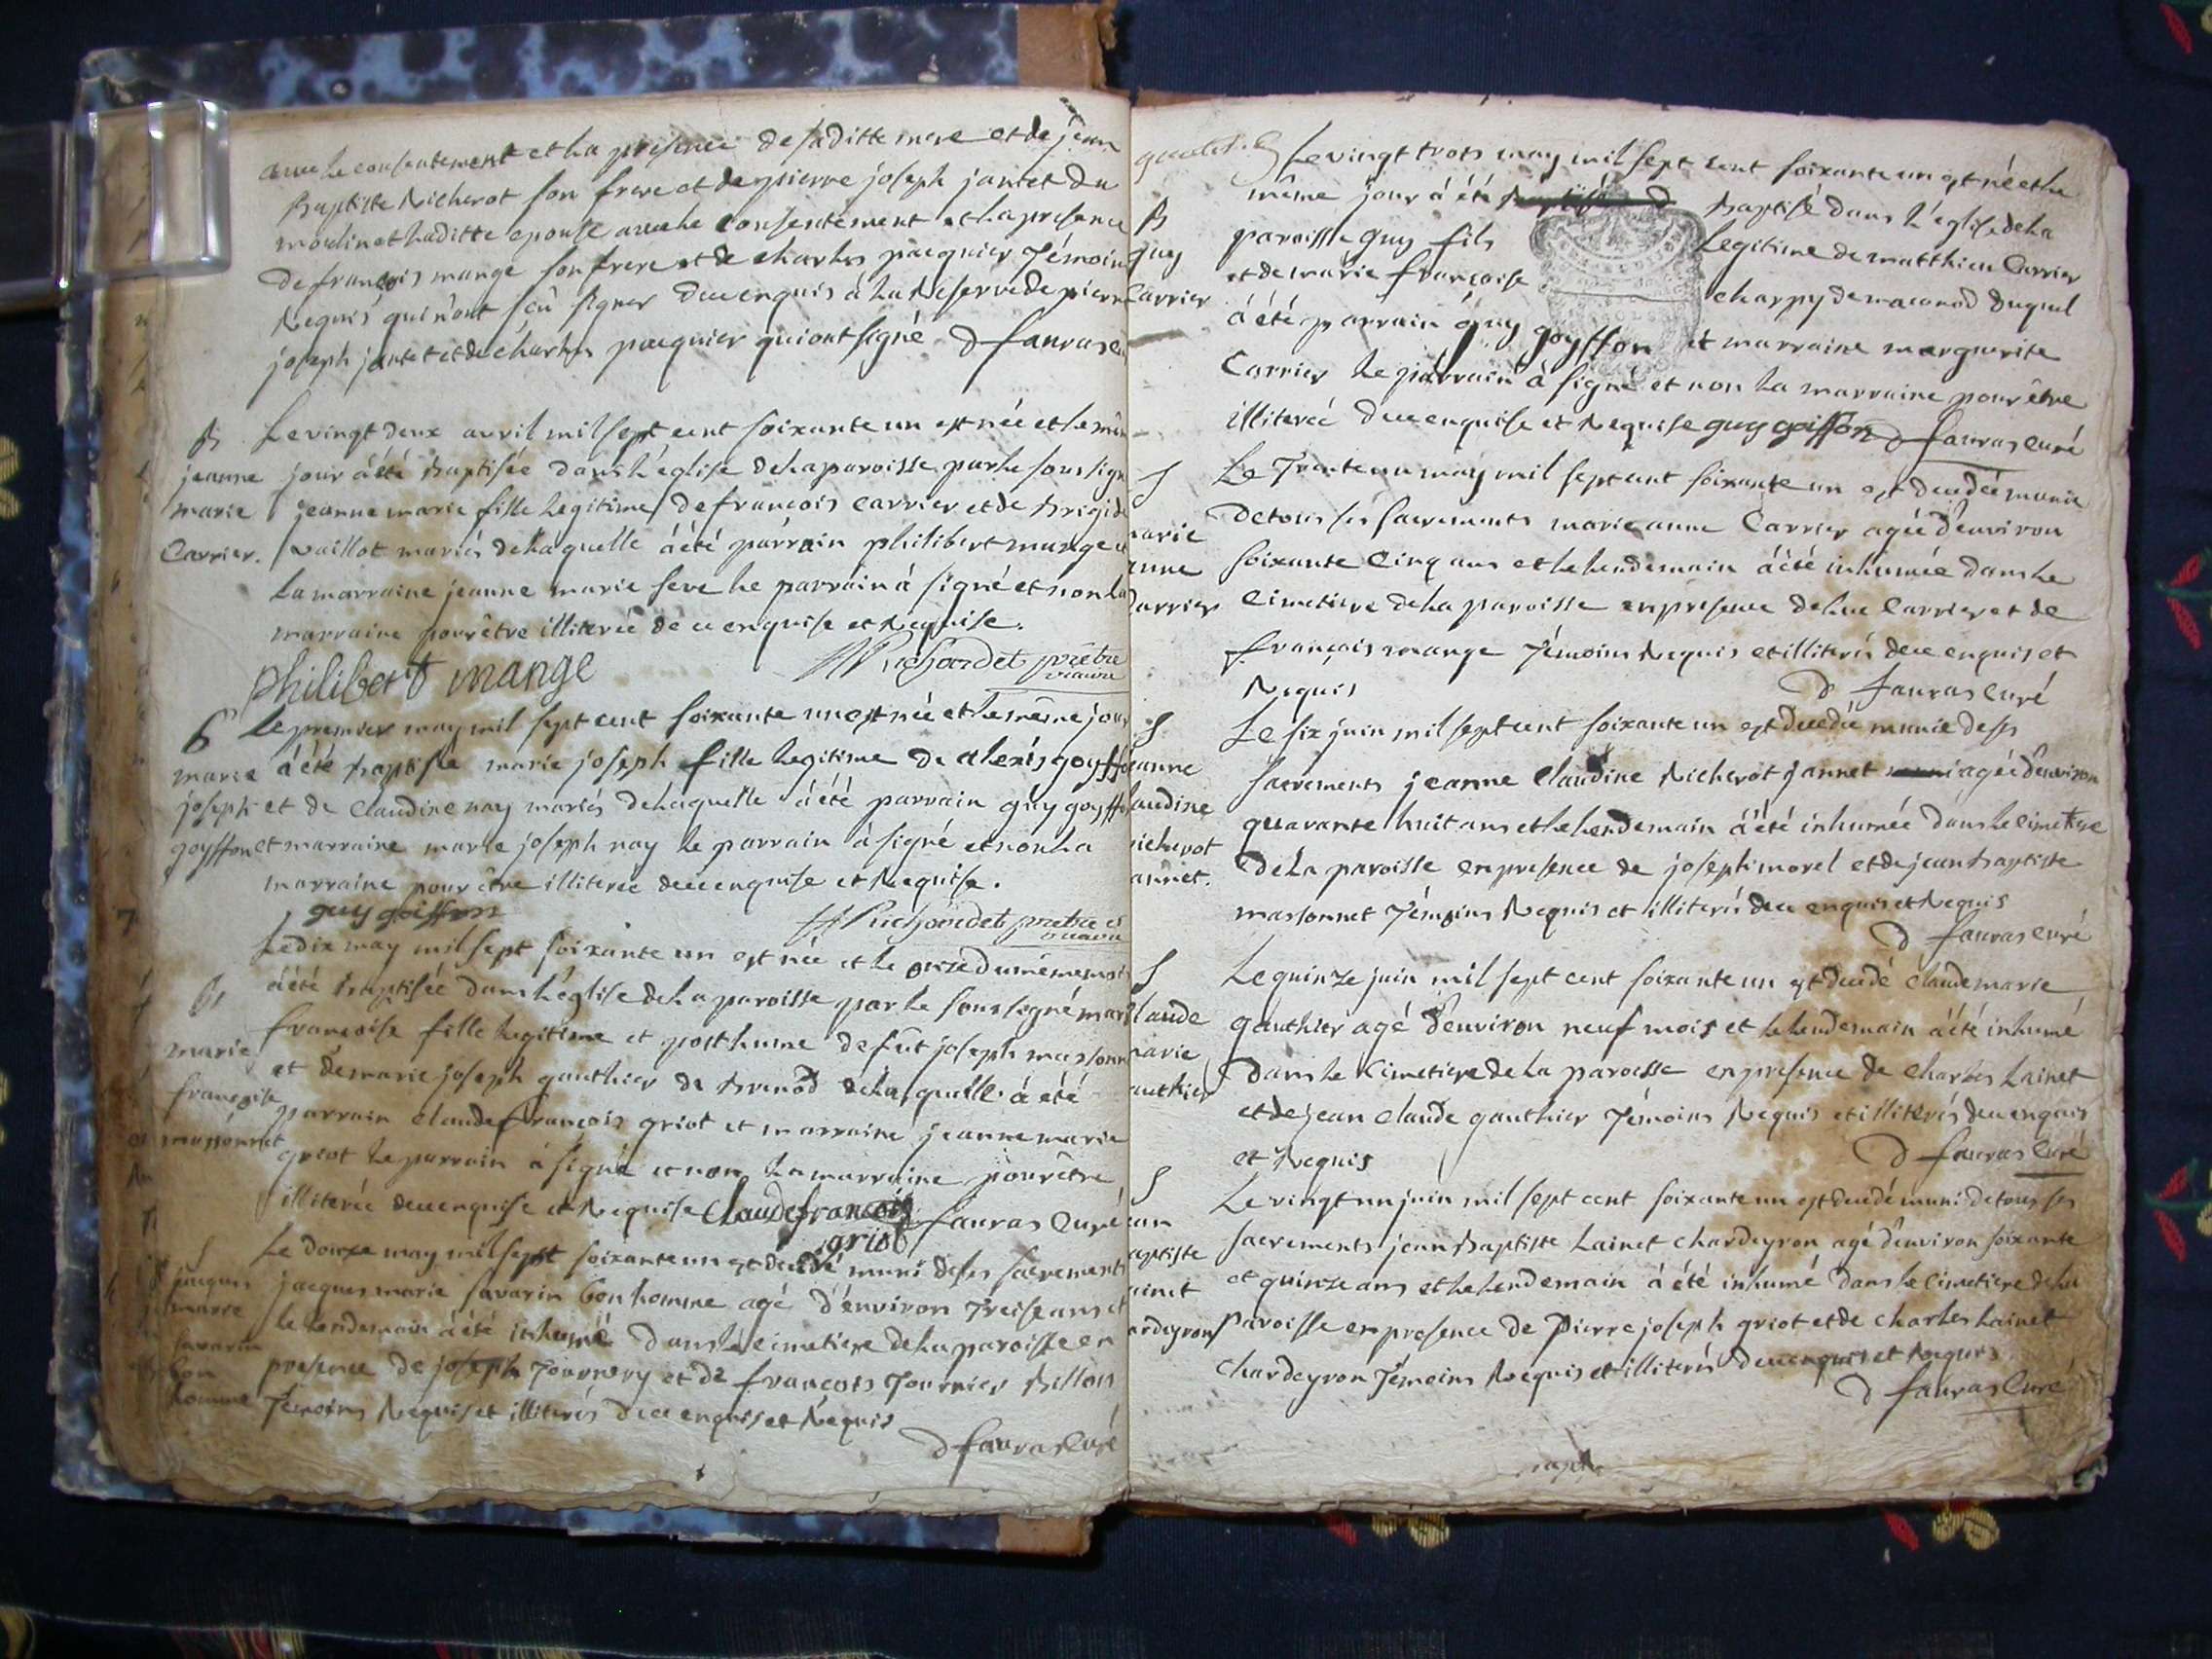 avec le consentement et la presence de saditte mere et de jean
Baptiste Richerot son frere et de pierre joseph jantet du
moulin et laditte epouse avec le consentement et la presence
de françois mange son frere et de charles pacquier Témoins
Requis qui n'ont sçu signer de ce enquis à la Reserve de pierre
joseph jantet et de charles pacquier qui ont signé D fauras
B
jeanne
marie
Carrier.
Le vingt deux avril mil sept cent soixante un est née et le même
jour à été Baptisée dans l'église de la paroisse par le sous signé
jeanne marie fille legitime de francois Carrier et de Brigide
vaillot mariés de laquelle à été parrain philibert mange et
la marraine jeanne marie feve le parrain à signé et non la
marraine pour être illiterée de ce enquise et Requise.
philibert mange Richardet prêtre
vicaire
B
marie
joseph
goyffon
Le premier may mil sept cent soixante un est née et le même jour
à été Baptisée marie joseph fille legitime de alexis goyffon
et de Claudine nay mariés de laquelle à été parrain guy goyffon
et marraine marie joseph nay le parrain à signé et non la
marraine pour être illiterée de ce enquise et Requise.
guy goiffon Richardet prêtre et
vicaire
B
marie
françoise
massonnet
Le dix may mil sept soixante un est née et le onze du même mois
à été Baptisée dans l'église de la paroisse par le soussigné marie
françoise fille legitime et posthume de feüt joseph massonnet
et de marie joseph gauthier de Brenod de laquelle à été
parrain claude françois griot et marraine jeanne marie
griot le parrain à signé et non la marraine pour être
illiterée de ce enquise et Requise Claude françois D fauras Curé
griot
S
jacques
marie
savarin
bon
homme
Le douze may mil sept soixante un est decedé muni de ses sacrements
jacques marie savarin bon homme agé d'environ Treise ans et
le lendemain à été inhumé dans le cimetiere de la paroisse en
presence de joseph Tournery et de françois Tournier Billon
Témoins Requis et illiterés de ce enquis et Requis
D fauras Curé
B
guy
Carrier
Le vingt trois may mil sept cent soixante un est né et le
même jour à été Baptisé dans l'eglise de la
paroisse guy fils Legitime de matthieu Carrier
et de marie françoise charpy de maconod duquel
à été parrain guy goyffon et marraine marguerite
Carrier le parrain à signé et non la marraine pour être
illiterée de ce enquise et Requise guy goiffon D fauras curé
S
marie
anne
Carrier
Le Trente un may mil sept cent soixante un est decedée munie
de tous ses sacrements marie anne Carrier agée d'environ
soixante Cinq ans et le lendemain à été inhumée dans le
Cimetiere de la paroisse en presence de luc Carrier et de
françois mange Témoins Requis et illiterés de ce enquis et
Requis D fauras Curé
S
jeanne
claudine
richerot
jannet.
Le six juin mil sept cent soixante un est decedée munie de ses
sacrements jeanne Claudine Richerot jannet agée d'environ
quarante huit ans et le lendemain à été inhumée dans le cimetiere
de la paroisse en presence de joseph morel et de jean Baptiste
massonnet Témoins Requis et illiterés de ce enquis et Requis
D fauras curé
S
Claude
marie
gauthier
Le quinze juin mil sept cent soixante un est decedé Claude marie
gauthier agé d'environ neuf mois et le lendemain à été inhumé
dans le Cimetiere de la paroisse en presence de Charles Lainet
et de jean Claude gauthier Témoins Requis et illiterés de ce enquis
et Requis D fauras Curé
S
jean
baptiste
lainet
chardeyron
Le vingt un juin mil sept cent soixante un est decedé muni de tous ses
sacrements jean Baptiste Lainet Chardeyron agé d'environ soixante
et quinze ans et le lendemain à été inhumé dans le Cimetiere de la
paroisse en presence de Pierre joseph griot et de charles Lainet
chardeyron Témoins Requis et illiterés de ce enquis et Requis
D fauras Curé